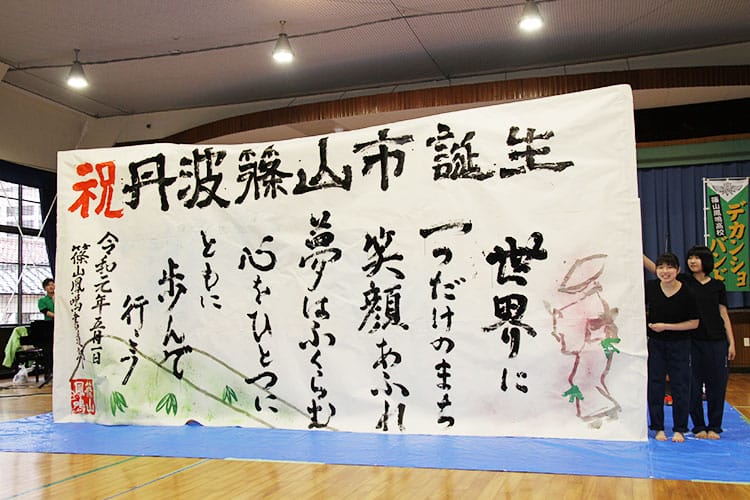 祝丹波篠山市誕生
世界に
一つだけのまち
笑顔あふれ
夢はふくらむ
心をひとつに
ともに
歩んで
行こう
令和元年五月一日
篠山鳳鳴書道部
篠山
鳳鳴
篠山鳳鳴高校
デカンショ
バンド